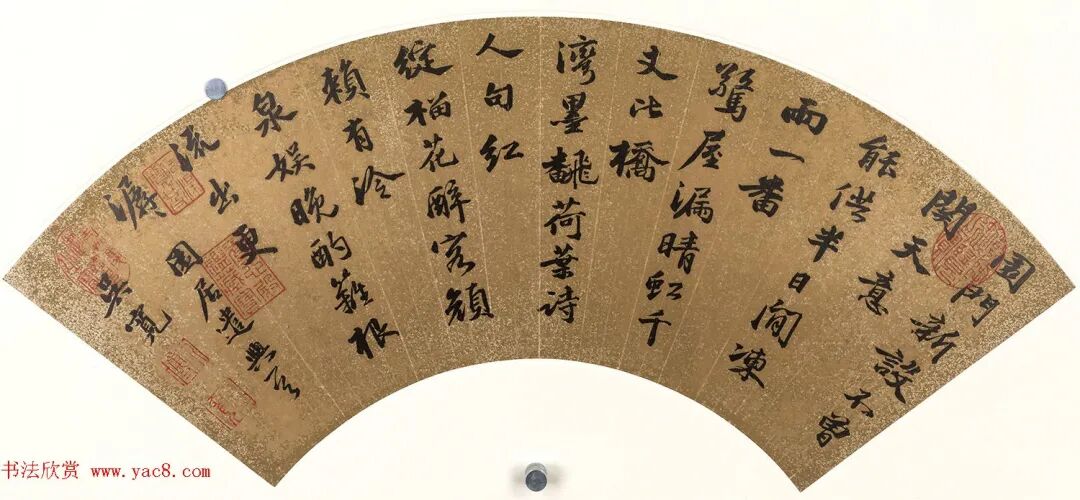 園門新設不曾
関天意
能供半日閒凍
雨一番
驚屋漏晴虹千
丈比橋
灣墨翻荷葉詩
人句紅
綻榴花醉客顏
賴有冷
泉娛晚酌籬根
流出更
潺
園居遣興
吳寬
书法欣赏 www.yac8.com